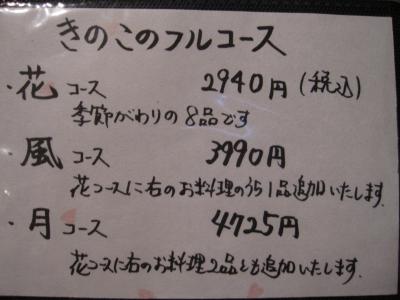 きのこのフルコース
・花コース 2940円(税込)
季節がわりの8品です
・風コース 3990円
花コースに右のお料理のうち1品追加いたします.
・月コース 4725円
花コースに右のお料理2品とも追加いたします.